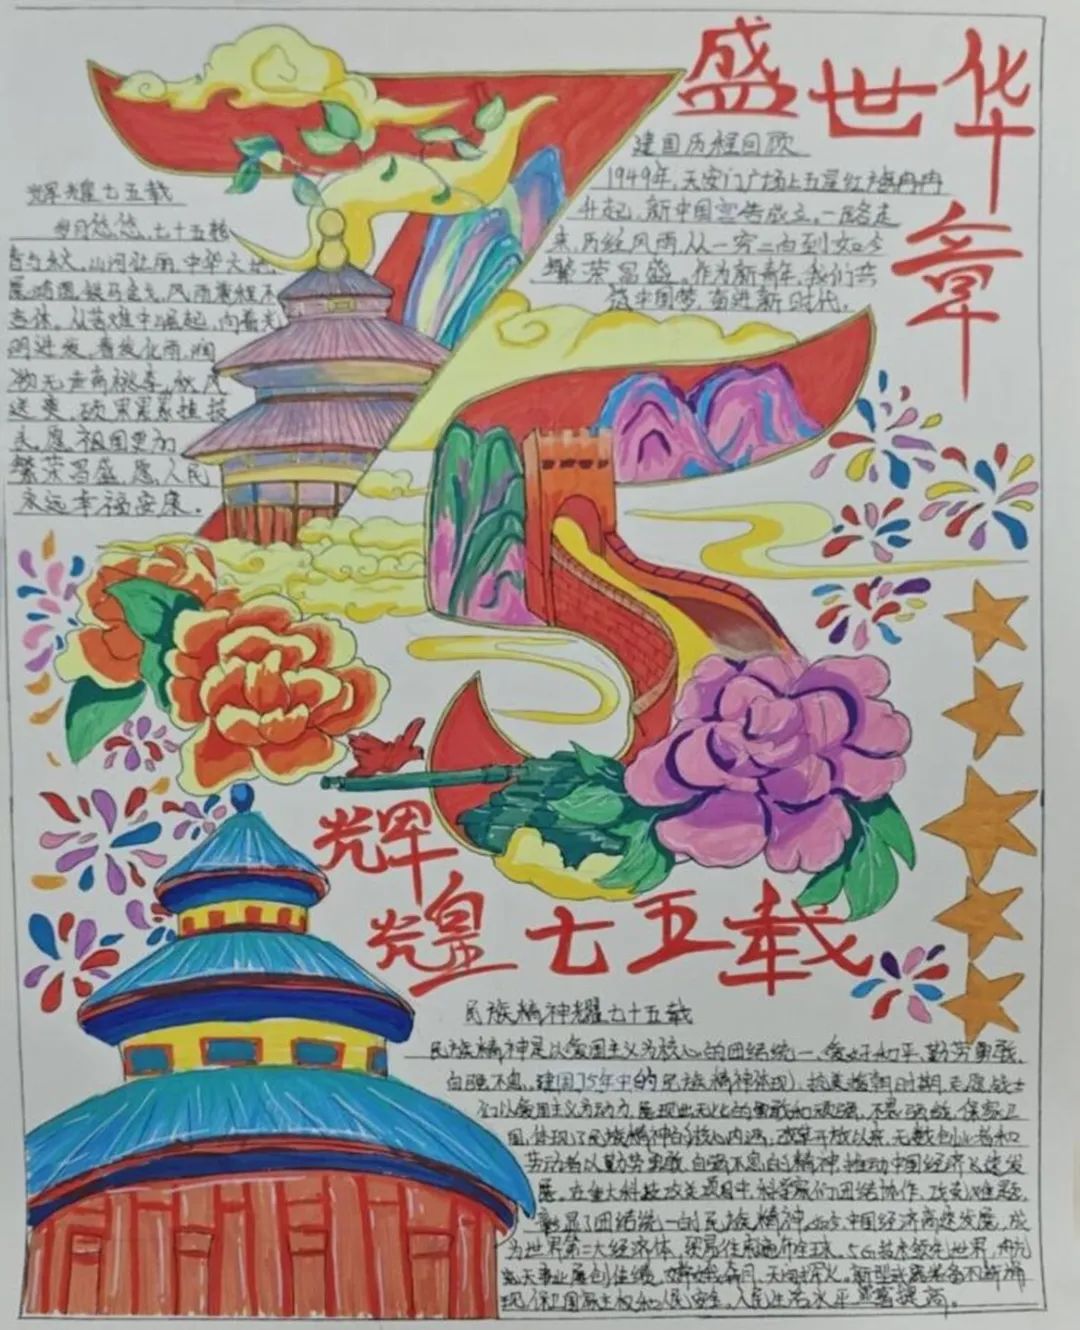 盛世华章
建国历程回顾
1949年,天安门广场上五星红旗冉冉
升起,新中国宣告成立。一路走
来,历经风雨,从一穷二白到如今
繁荣昌盛。作为新青年,我们
中国梦,奋进新时代。
辉耀七五载
岁月悠悠,七十五轮
山河壮丽,中华大地
风雨兼程不
从苦难中崛起,向着光
明进发,春风化雨,润
物无声育桃李,秋风
送爽,硕果累累
民,愿祖国更加
繁荣昌盛,愿人民
永远幸福安康。
辉煌七五载
民族精神耀七十五载
民族精神是以爱国主义为核心的团结统一、爱好和平、勤劳勇敢、
自强不息。建国75年中的民族精神体现,抗美援朝时期,志愿战士
们以爱国主义为动力,展现出无比的勇敢和顽强,不畏强敌,保家卫
国,体现了民族精神的核心内涵,改革开放以来,无数创业者和
劳动者以勤劳勇敢、自强不息的精神,推动中国经济飞速发
展,在重大科技攻关项目中,科学家们团结协作,攻克难题,
彰显了团结统一的民族精神,如今中国经济高速发展,成
为世界第二大经济体,贸易往来遍布全球,5G技术领先世界,航
空航天事业屡创佳绩,嫦娥奔月,天问探火。新型武器装备不断涌
现,保卫国家主权和人民安全,人民生活水平显著提高。